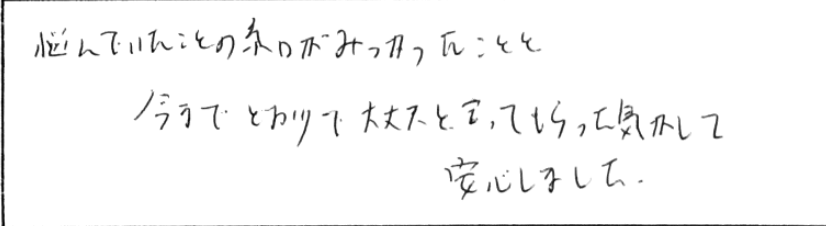 悩んでいたことの糸口がみつかったことと
今までとおりで大丈夫と言ってもらった気がして
安心しました.